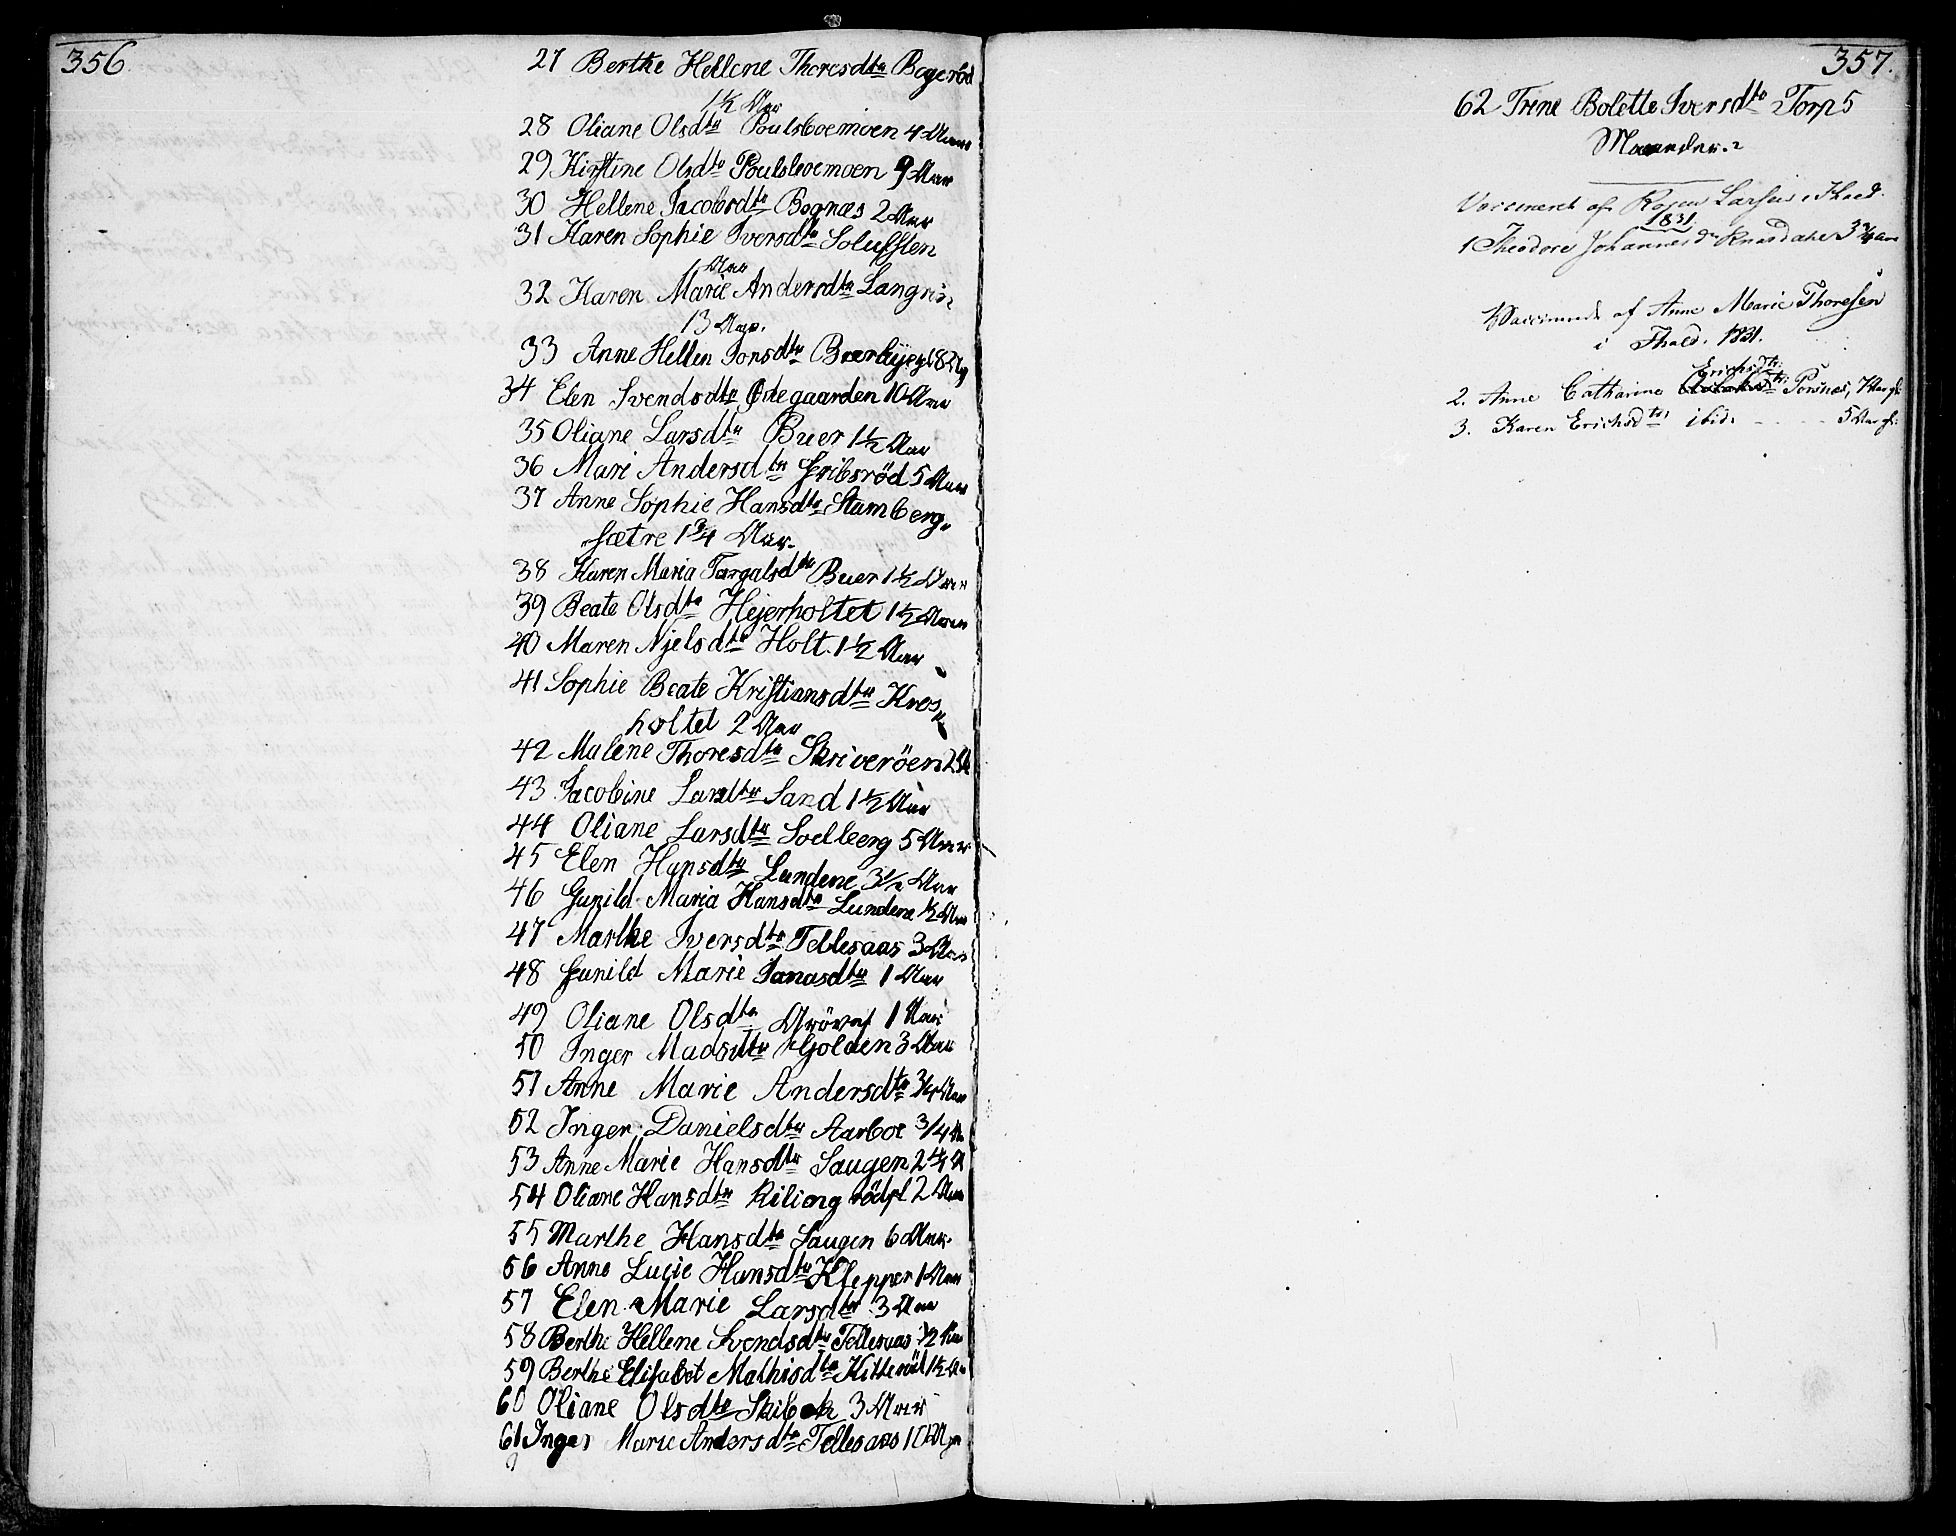 356.
27 Berthe Hellene Thoresdtr Bogeröd
1½ Aar
28 Oliane Olsdtr Poulsboemoen 4 Aar
29 Kirstine Olsdtr Poulsboemoen 9 Aar
30 Hellene Jacobsdtr Bognæs 2 Aar
31 Karen Sophie Iversdtr
Aar
32 Karen Marie Andersdtr
13 Aar.
33 Anne Hellen Jonsdtr
34 Elen Svendsdtr Ödegaarden 10 Aar
35 Oliane Larsdtr Buer 1½ Aar
36 Mari Andersdtr 5 Aar
37 Anne Sophie Hansdtr Stamberg„
„sætre 1¾ Aar.
38 Karen Maria Torgalsdtr Buer 1½ Aar
39 Beate Olsdtr Hejerholtet 1½ Aar
40 Maren Njelsdtr Holt. 1½ Aar
41 Sophie Beate Kristiansdtr Kros„
holtet 2 Aar
42 Malene Thoresdtr Skriveröen
43 Jacobine Larsdtr Sand 1½ Aar
44 Oliane Larsdtr Soelberg 5 Aar
45 Elen Hansdtr Lundene 3½ Aar
46 Gunild Maria Hansdtr Lundene ½ Aar
47 Marthe Iversdtr Tellesaas 3 Aar
48 Gunild Marie Jonasdtr 1 Aar
49 Oliane Olsdtr 1 Aar
50 Inger Madsdtr 3 Aar
51 Anne Marie Andersdtr ¾ Aar
52 Inger Danielsdtr Aarboe 3/4
53 Anne Marie Hansdtr Saugen
54 Oliane Hansdtr 2 Aar
55 Marthe Hansdtr Saugen 6 Aar.
56 Anne Lucie Hansdtr Klepper 1 Aar
57 Elen Marie Larsdtr 3 Aar
58 Berthe Hellene Svendsdtr Tellesaas ½ Aar
59 Berthe Elisabet Mathisdtr Kitteröd 1½ Aar
60 Oliane Olsdtr Skibek 3 Aar
61 Inger Marie Andersdtr Tellesaas
357.
62 Trene Bolette Iversdtr Torp 5
Maaneder.
Vaccineret af Larsen, Fhald.
1831
1 Theodore Johannesdtr 3¾ Aar
Vaccinerede af Anne Marie Thoresen
i Fhald. 1831.
Erichsdtr
2. Anne Catharine Porsnæs, 7 Aar gl.
3. Karen Erichsdtr ibid. - - - - 5 Aar gl.